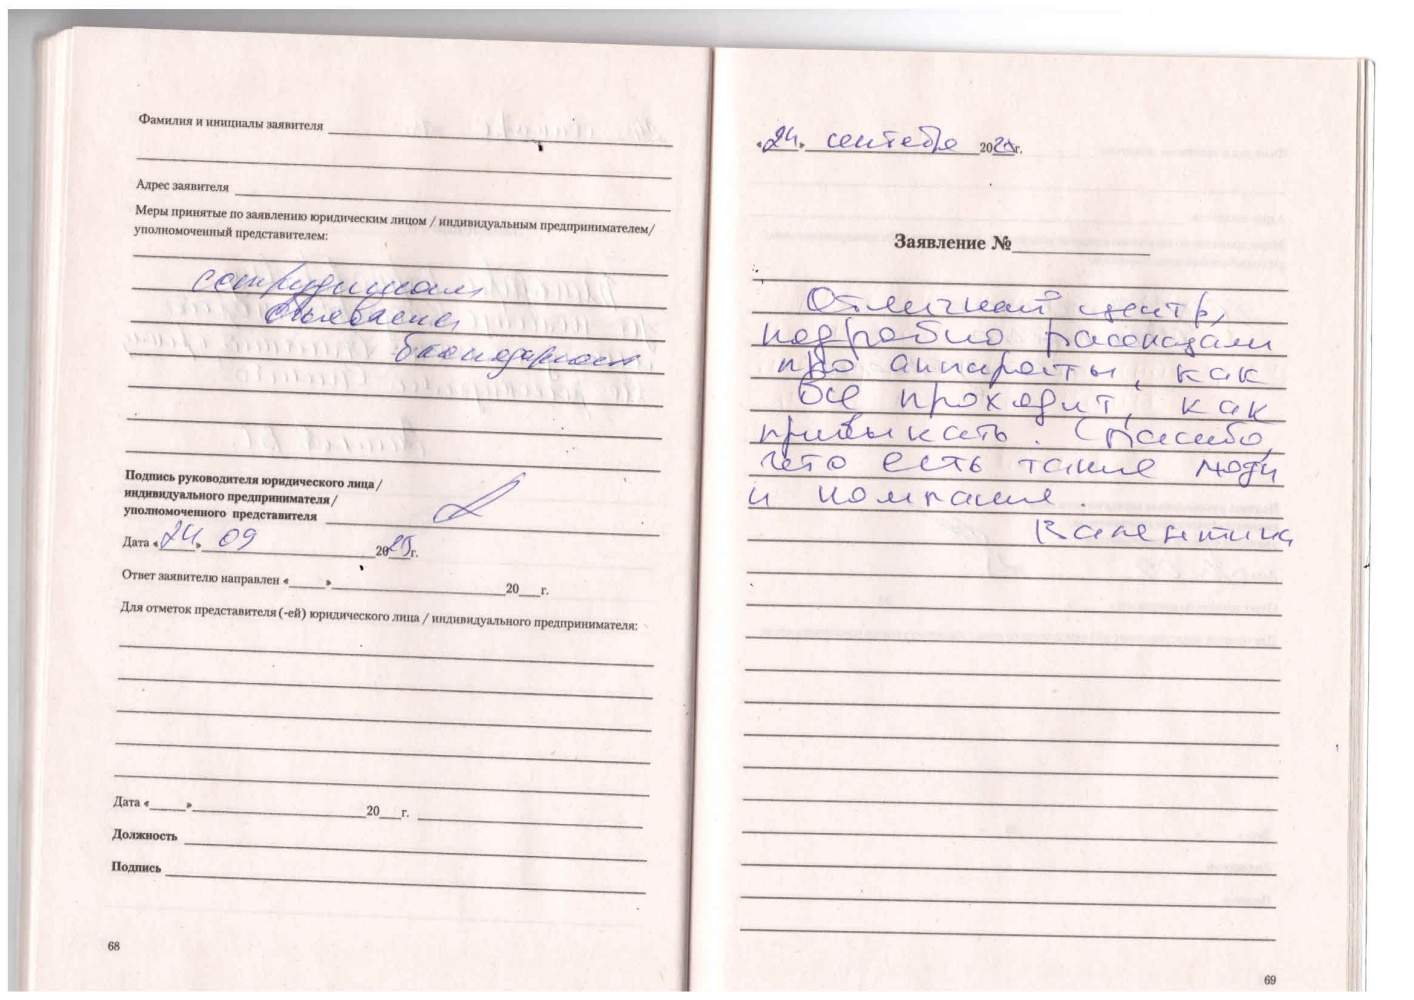 Фамилия и инициалы заявителя
Адрес заявителя
Меры принятые по заявлению юридическим лицом / индивидуальным предпринимателем/
уполномоченный представителем:
сотрудникам
объявлена
благодарност
Подпись руководителя юридического лица/
индивидуального предпринимателя/
уполномоченного представителя
Дата «24» 09 2025г.
Ответ заявителю направлен «___» 20__г.
Для отметок представителя (-ей) юридического лица / индивидуального предпринимателя:
Дата «___» 20__г.
Должность
Подпись
68
«24» сентебре 2025г.
Заявление №
Отличнай центр,
подробно рассказали
про аппараты, как
все проходит, как
привыкать. Спасибо,
что есть такие люди
и компание.
Валентина
69